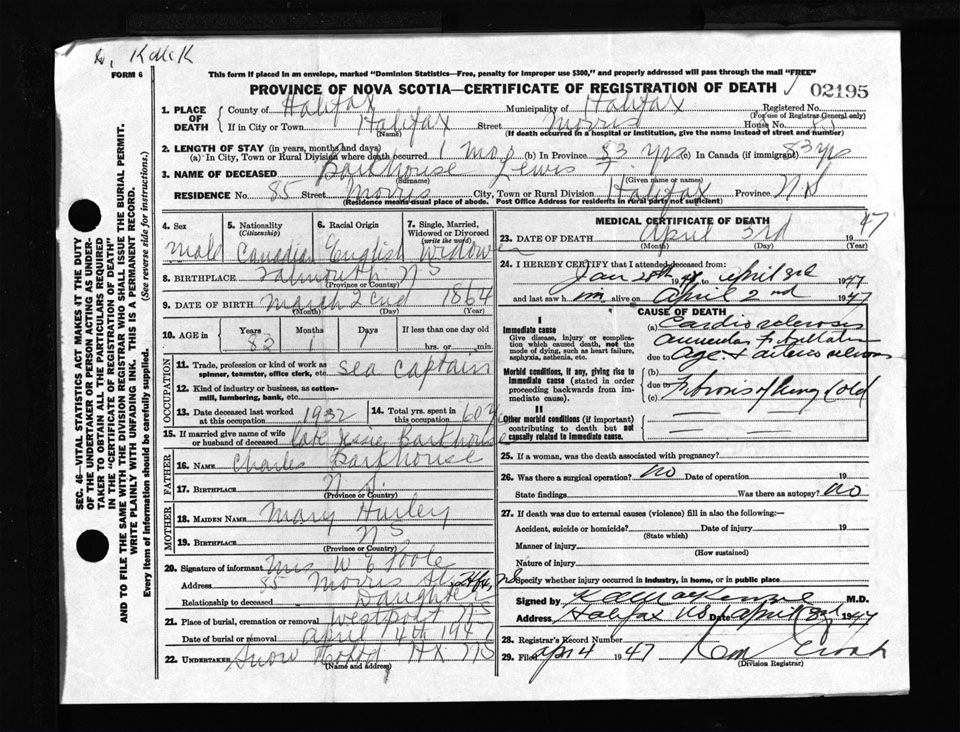 FORM 6
This form if placed in an envelope, marked "Dominion Statistics—Free, penalty for improper use $300," and properly addressed will pass through the mail "FREE"
PROVINCE OF NOVA SCOTIA—CERTIFICATE OF REGISTRATION OF DEATH
02195
1. PLACE OF DEATH
County of Halifax Municipality of Halifax Registered No.
(For use of Registrar General only)
If in City or Town Halifax Street Morris House No. 85
(Name) (If death occurred in a hospital or institution, give the name instead of street and number)
2. LENGTH OF STAY (in years, months and days)
(a) In City, Town or Rural Division where death occurred 1 mo (b) In Province 83 yrs (c) In Canada (if immigrant) 83 yrs
3. NAME OF DECEASED Barkhouse Lewis
(Surname) (Given name or names)
RESIDENCE No. 85 Morris City, Town or Rural Division Halifax Province N S
(Residence means usual place of abode. Post Office Address for residents in rural parts not sufficient)
4. Sex
male
5. Nationality
(Citizenship)
Canadian
6. Racial Origin
English
7. Single, Married, Widowed or Divorced
(write the word)
Widower
8. BIRTHPLACE Falmouth N S
9. DATE OF BIRTH March 2 1864
(Month) (Day) (Year)
10. AGE in
Years Months Days If less than one day old
83 1 hrs. or min.
OCCUPATION
11. Trade, profession or kind of work as spinner, teamster, office clerk, etc. sea captain
12. Kind of industry or business, as cotton-mill, lumbering, bank, etc.
13. Date deceased last worked at this occupation 1932
14. Total yrs. spent in this occupation 60
15. If married give name of wife or husband of deceased late Jessie Barkhouse
FATHER
16. NAME Charles Barkhouse
17. BIRTHPLACE N S
(Province or Country)
MOTHER
18. MAIDEN NAME Mary Hurley
19. BIRTHPLACE N S
(Province or Country)
20. Signature of informant Mrs W E Poole
Address 85 Morris St Hfx, N S
Relationship to deceased Daughter
21. Place of burial, cremation or removal Westport N S
Date of burial or removal April 4th 1947
22. UNDERTAKER Snow Hfx N S
(Name and address)
MEDICAL CERTIFICATE OF DEATH
23. DATE OF DEATH April 3rd 1947
(Month) (Day) (Year)
24. I HEREBY CERTIFY that I attended deceased from:
Jan 28th 1947 to April 3rd 1947
and last saw him alive on April 2nd 1947
CAUSE OF DEATH
I
Immediate cause
Give disease, injury or complication which caused death, not the mode of dying, such as heart failure, asphyxia, asthenia, etc.
(a) Cardiosclerosis
due to Age & arteriosclerosis
Morbid conditions, if any, giving rise to immediate cause (stated in order proceeding backwards from immediate).
(b)
due to
(c) Fibrosis of lung (old
II
Other morbid conditions (if important) contributing to death but not causally related to immediate cause.
25. If a woman, was the death associated with pregnancy?
26. Was there a surgical operation? No Date of operation 19
State findings Was there an autopsy? No
27. If death was due to external causes (violence) fill in also the following:—
Accident, suicide or homicide? Date of injury 19
(State which)
Manner of injury
(How sustained)
Nature of injury
Specify whether injury occurred in industry, in home, or in public place
Signed by MacKenzie M.D.
Address Halifax NS Date April 3rd 1947
28. Registrar's Record Number
29. Filed Apr 4 1947
(Division Registrar)
SEC. 46—VITAL STATISTICS ACT MAKES IT THE DUTY OF THE UNDERTAKER OR PERSON ACTING AS UNDERTAKER TO OBTAIN ALL THE PARTICULARS REQUIRED IN THE "CERTIFICATE OF REGISTRATION OF DEATH" AND TO FILE THE SAME WITH THE DIVISION REGISTRAR WHO SHALL ISSUE THE BURIAL PERMIT.
WRITE PLAINLY WITH UNFADING INK. THIS IS A PERMANENT RECORD.
Every item of information should be carefully supplied. (See reverse side for instructions.)